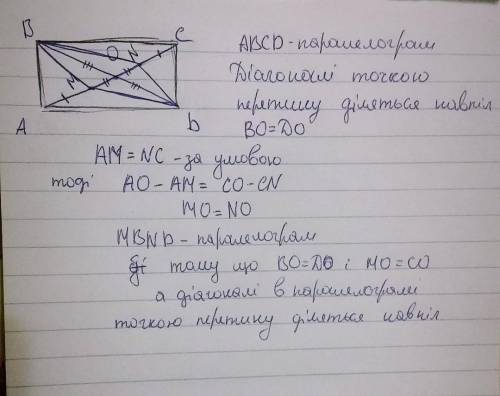 B
C
O
N
M
A
D
ABCD - паралелограм
Діагоналі точкою
перетину діляться навпіл
BO=DO
AM = NC - за умовою
тоді AO - AM = CO - CN
MO = NO
MBND - паралелограм
тому що BO=DO і MO=CO
а діагоналі в паралелограмі
точкою перетину діляться навпіл